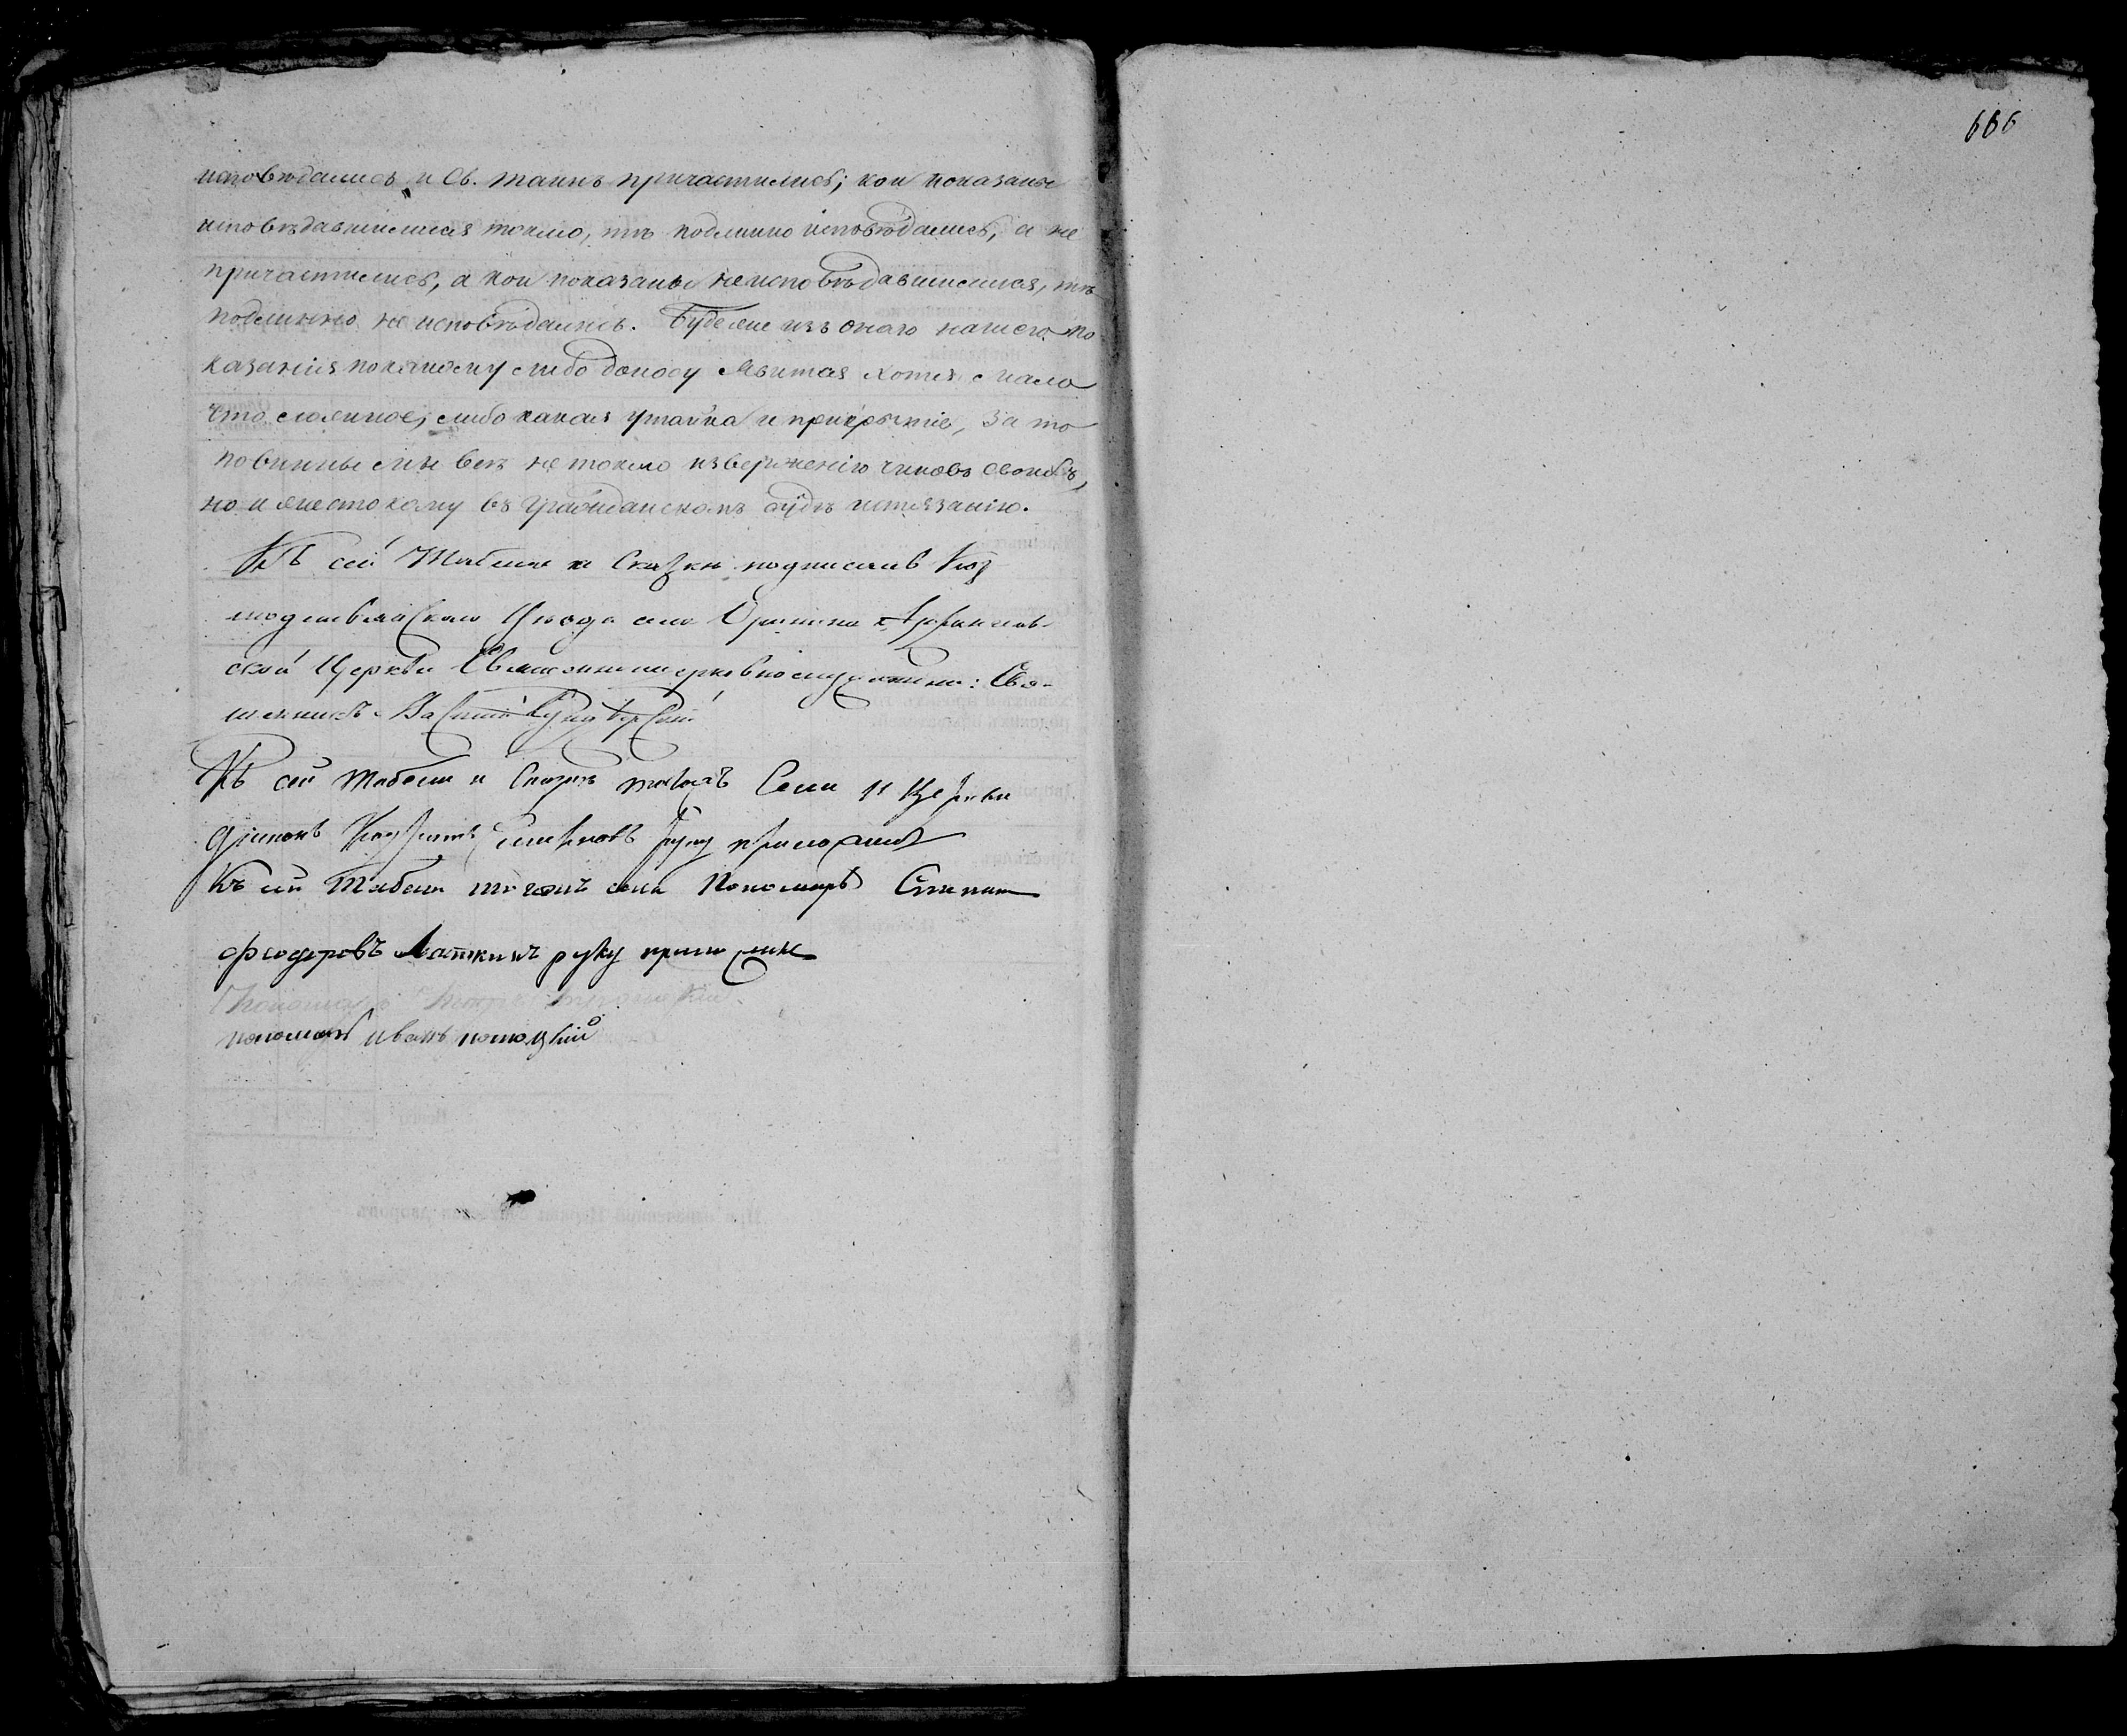 666
исповѣдались и Св. таинъ причастились; кои показаны
исповѣдавшимися токмо, тѣ подлинно исповѣдались, а не
причастились, а кои показаны неисповѣдавшимися, тѣ
подлинно не исповѣдались. Буде же изъ онаго нашего по-
казанія по какому либо доносу явится хотя мало
что ложное, либо какая утайка и прикрытіе, за то
повинны мы всѣ не токмо изверженію чиновъ своихъ,
но и жестокому въ гражданскомъ судѣ истязанію.
Къ сей Табели и Сказкѣ подписались Коз
модемьянскаго Уѣзда села Архангель-
ской Церкви Священно и церковнослужители: Свя-
щенникъ Василій
Къ сей Табели и Сказкѣ тогожъ Села и Церкви
руку приложилъ
Къ сей Табели тогожъ села Пономарь Степанъ
Феодоровъ руку приложилъ
Пономарь
пономарь иванъ